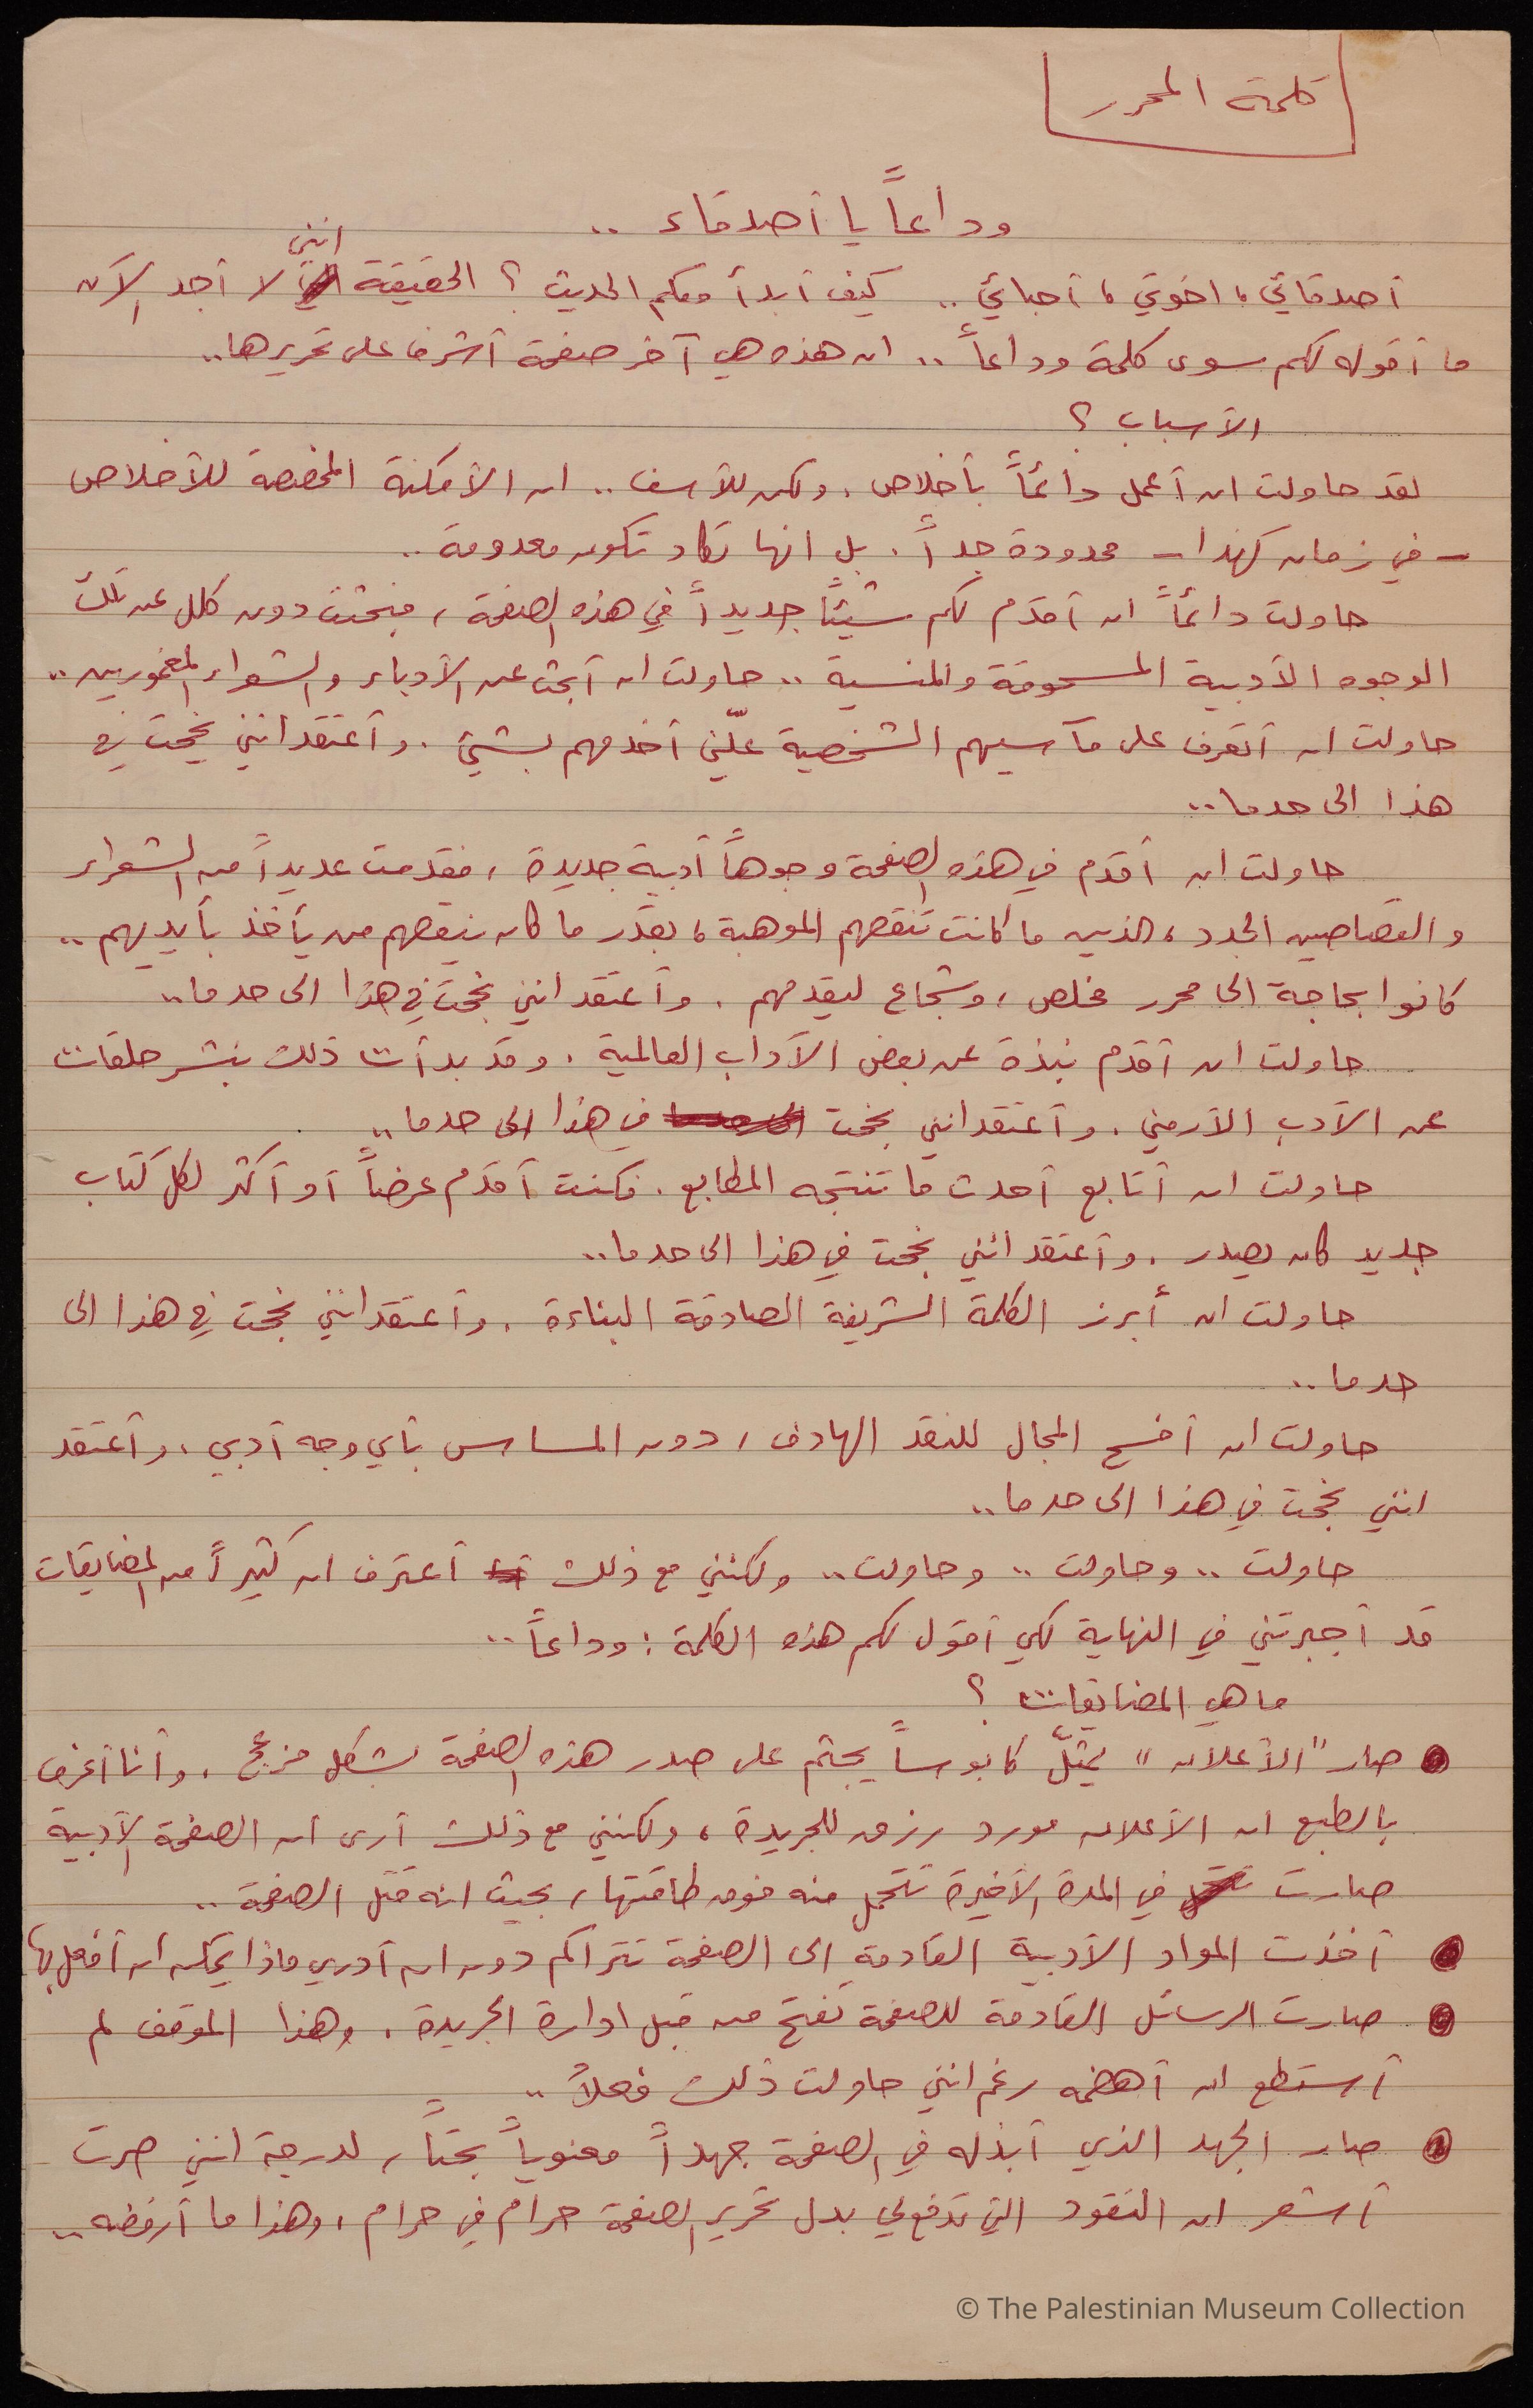 كلمة المحرر
وداعاً يا أصدقاء ..
أصدقائي ، اخوتي ، أحبائي .. كيف أبدأ معكم الحديث ؟ الحقيقة انني لا أجد الآن
ما أقوله لكم سوى كلمة وداعاً .. ان هذه هي آخر صفحة أشرف على تحريرها ..
الأسباب ؟
لقد حاولت ان أعمل دائماً بأخلاص . ولكن للأسف .. ان الأمكنة المخصصة للأخلاص
– في زمان كهذا – محدودة جداً . بل انها تكاد تكون معدومة ..
حاولت دائماً ان أقدم لكم شيئاً جديداً في هذه الصفحة ، فبحثت دون كلل عن تلك
الوجوه الأدبية المسحوقة والمنسية .. حاولت ان أبحث عن الأدباء والشعراء المغمورين ..
حاولت ان أتعرف على مآسيهم الشخصية علّني أخدمهم بشيئ . وأعتقد انني نجحت في
هذا الى حد ما ..
حاولت ان أقدم في هذه الصفحة وجوهاً أدبية جديدة ، فقدمت عديداً من الشعراء
والقصاصين الجدد ، الذين ما كانت تنقصهم الموهبة ، بقدر ما كان ينقصهم من يأخذ بأيديهم ..
كانوا بحاجة الى محرر مخلص ، وشجاع ليقدمهم . وأعتقد انني نجحت في هذا الى حد ما ..
حاولت ان أقدم نبذة عن بعض الآداب العالمية . وقد بدأت ذلك بنشر حلقات
عن الأدب الأرمني . وأعتقد انني نجحت في هذا الى حد ما ..
حاولت ان أتابع أحدث ما تنتجه المطابع . فكنت أقدم عرضاً أو أكثر لكل كتاب
جديد كان يصدر . وأعتقد انني نجحت في هذا الى حد ما ..
حاولت ان أبرز الكلمة الشريفة الصادقة البناءة . وأعتقد انني نجحت في هذا الى
حد ما ..
حاولت ان أفسح المجال للنقد الهادف ، دون المساس بأي وجه أدبي . وأعتقد
انني نجحت في هذا الى حد ما ..
حاولت .. وحاولت .. وحاولت .. ولكنني مع ذلك أعترف ان كثيراً من المضايقات
قد أجبرتني في النهاية لكي أقول لكم هذه الكلمة : وداعاً ..
ما هي المضايقات ؟
● صار "الأعلان" يمثّل كابوساً يجثم على صدر هذه الصفحة بشكل مزعج . وأنا أعرف
بالطبع ان الأعلان مورد رزق للجريدة ، ولكنني مع ذلك أرى ان الصفحة الأدبية
صارت في المدة الأخيرة تتحمل منه فوق طاقتها ، بحيث انه قتل الصفحة ..
● أخذت المواد الأدبية القادمة الى الصفحة تتراكم دون ان أدري ماذا يمكن ان أفعل بها
● صارت الرسائل القادمة للصفحة تفتح من قبل ادارة الجريدة . وهذا الموقف لم
أستطع ان أهضمه رغم انني حاولت ذلك فعلاً ..
● صار الجهد الذي أبذله في الصفحة جهداً معنوياً بحتاً ، لدرجة انني صرت
أشعر ان النقود التي تدفع لي بدل تحرير الصفحة حرام في حرام ، وهذا ما أرفضه ..
© The Palestinian Museum Collection